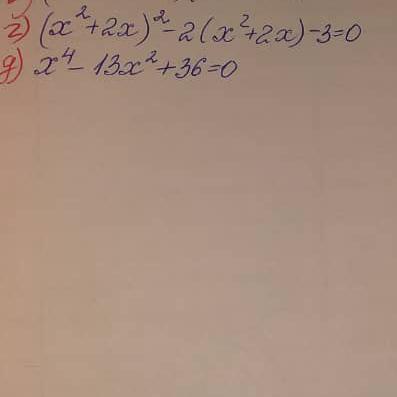 г) (x²+2x)²-2(x²+2x)-3=0
д) x⁴-13x²+36=0